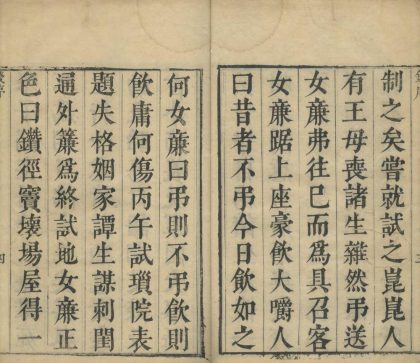 制之矣嘗就試之崑崑人
有王母喪諸生雜然弔送
女廉弗往巳而爲具召客
女廉踞上座豪飲大嚼人
曰昔者不弔今日飲如之
何女廉曰弔則不弔飲則
飲庸何傷丙午試瑣院表
題失格姻家譚生謀刺閨
逼外簾爲終試地女廉正
色曰鑽徑竇壞塲屋得一